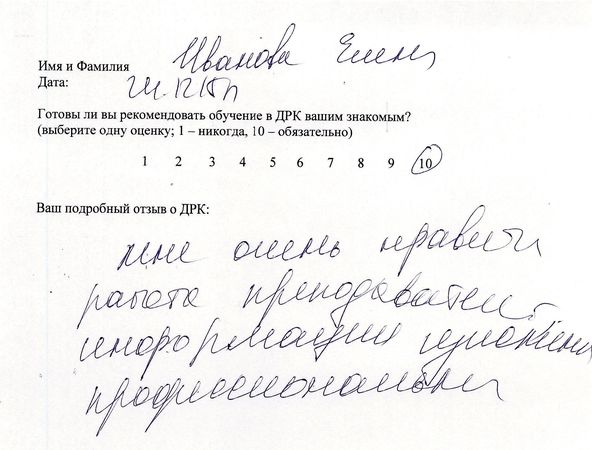 Имя и Фамилия Иванова Елена
Дата:
Готовы ли вы рекомендовать обучение в ДРК вашим знакомым?
(выберите одну оценку; 1 – никогда, 10 – обязательно)
1 2 3 4 5 6 7 8 9 10
Ваш подробный отзыв о ДРК:
мне очень нравится
работа преподавателей.
информация изложена
профессионально